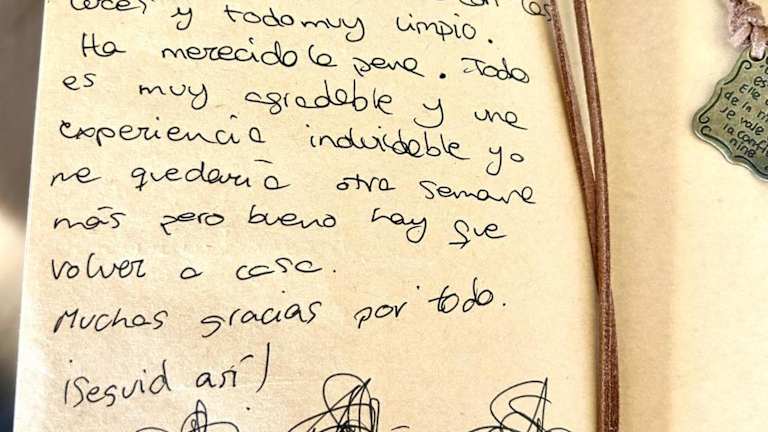 y todo muy limpio.
Ha merecido la pena. Todo
es muy agradable y una
experiencia inolvidable yo
me quedaría otra semana
más pero bueno hay que
volver a casa.
Muchas gracias por todo.
¡Seguid así!
es
Elle
de la
se vale
la conf